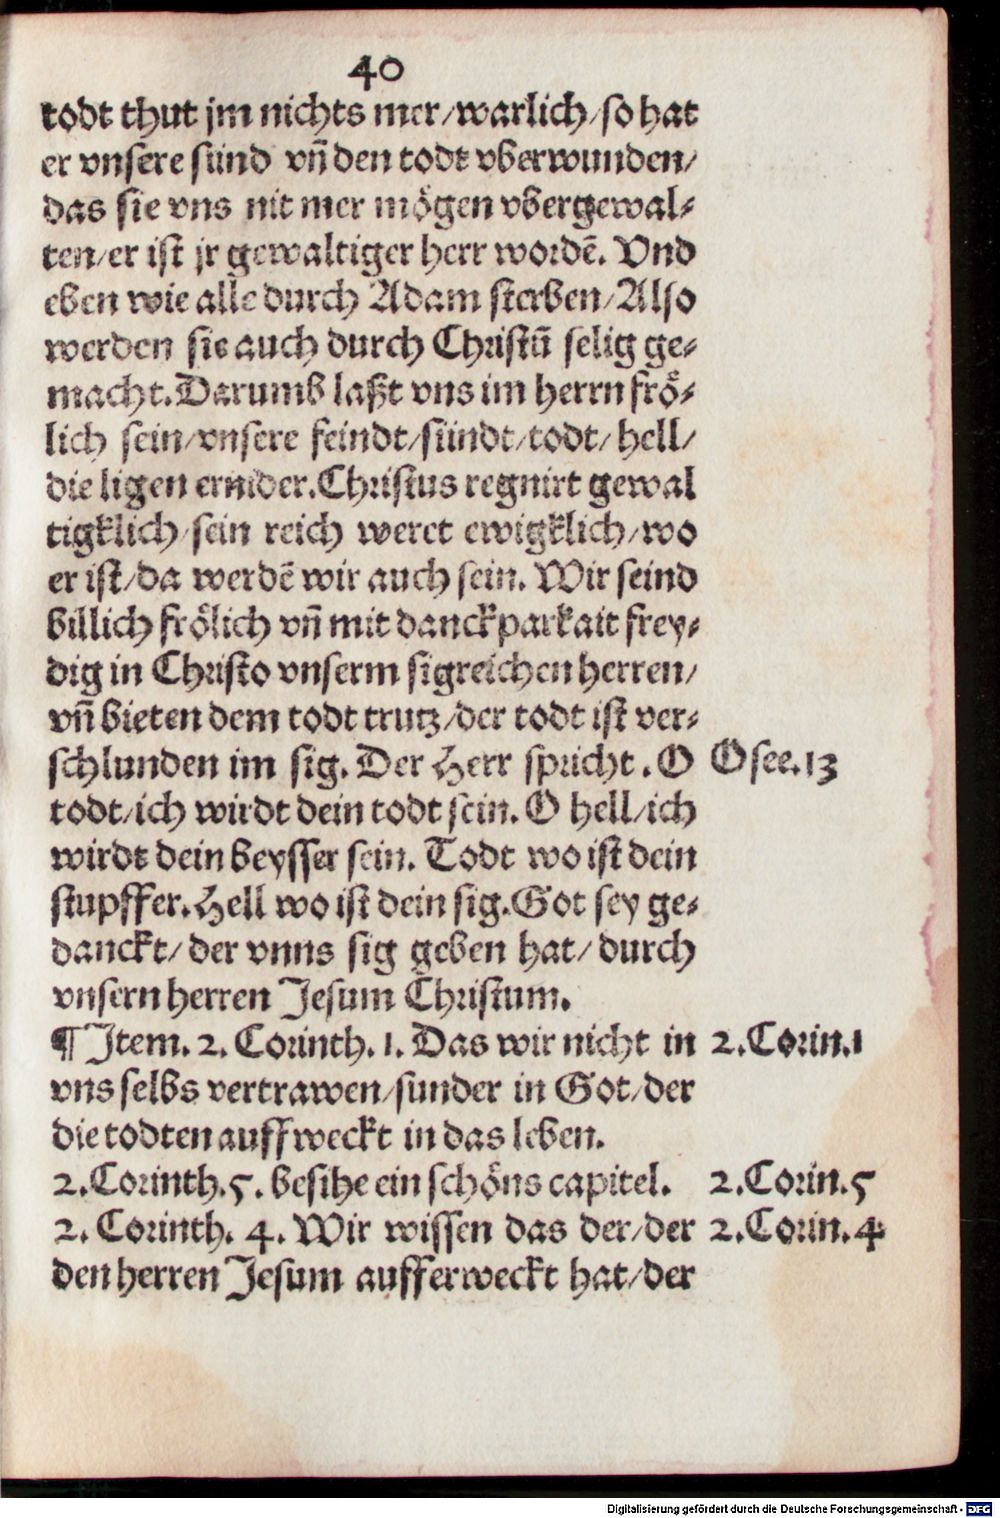 40
todt thut jm nichts mer/warlich/so hat
er vnsere sünd vñ den todt vberwunden/
das sie vns nit mer mögen vbergewal⸗
ten/er ist jr gewaltiger herr wordē. Vnd
eben wie alle durch Adam sterben/Also
werden sie auch durch Christū selig ge⸗
macht. Darumb laßt vns im herrn frö⸗
lich sein/vnsere feindt/sündt/todt/hell/
die ligen ernider. Christus regnirt gewal
tigklich/sein reich weret ewigklich/wo
er ist/da werdē wir auch sein. Wir seind
billich frölich vñ mit danckparkait frey⸗
dig in Christo vnserm sigreichen herren/
vñ bieten dem todt trutz/der todt ist ver⸗
schlunden im sig. Der Herr spricht. O Osee.13
todt/ich wirdt dein todt sein. O hell/ich
wirdt dein beysser sein. Todt wo ist dein
stupffer. Hell wo ist dein sig. Got sey ge⸗
danckt/der vnns sig geben hat/durch
vnsern herren Jesum Christum.
¶ Item. 2. Corinth. 1. Das wir nicht in 2.Corin.1
vns selbs vertrawen/sunder in Got/der
die todten auffweckt in das leben.
2. Corinth. 5. besihe ein schöns capitel. 2.Corin.5
2. Corinth. 4. Wir wissen das der/der 2.Corin.4
den herren Jesum aufferweckt hat/der
Digitalisierung gefördert durch die Deutsche Forschungsgemeinschaft - DFG